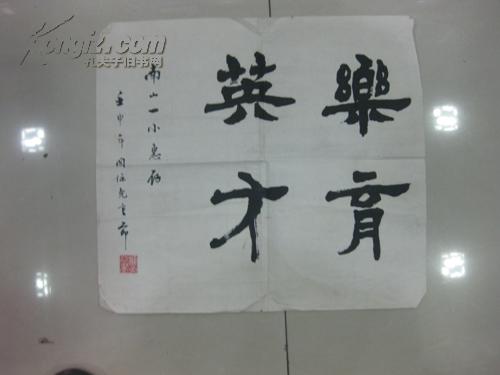 樂育
英才
南山一小惠存
壬申年
Kongfz.com
孔夫子旧书网